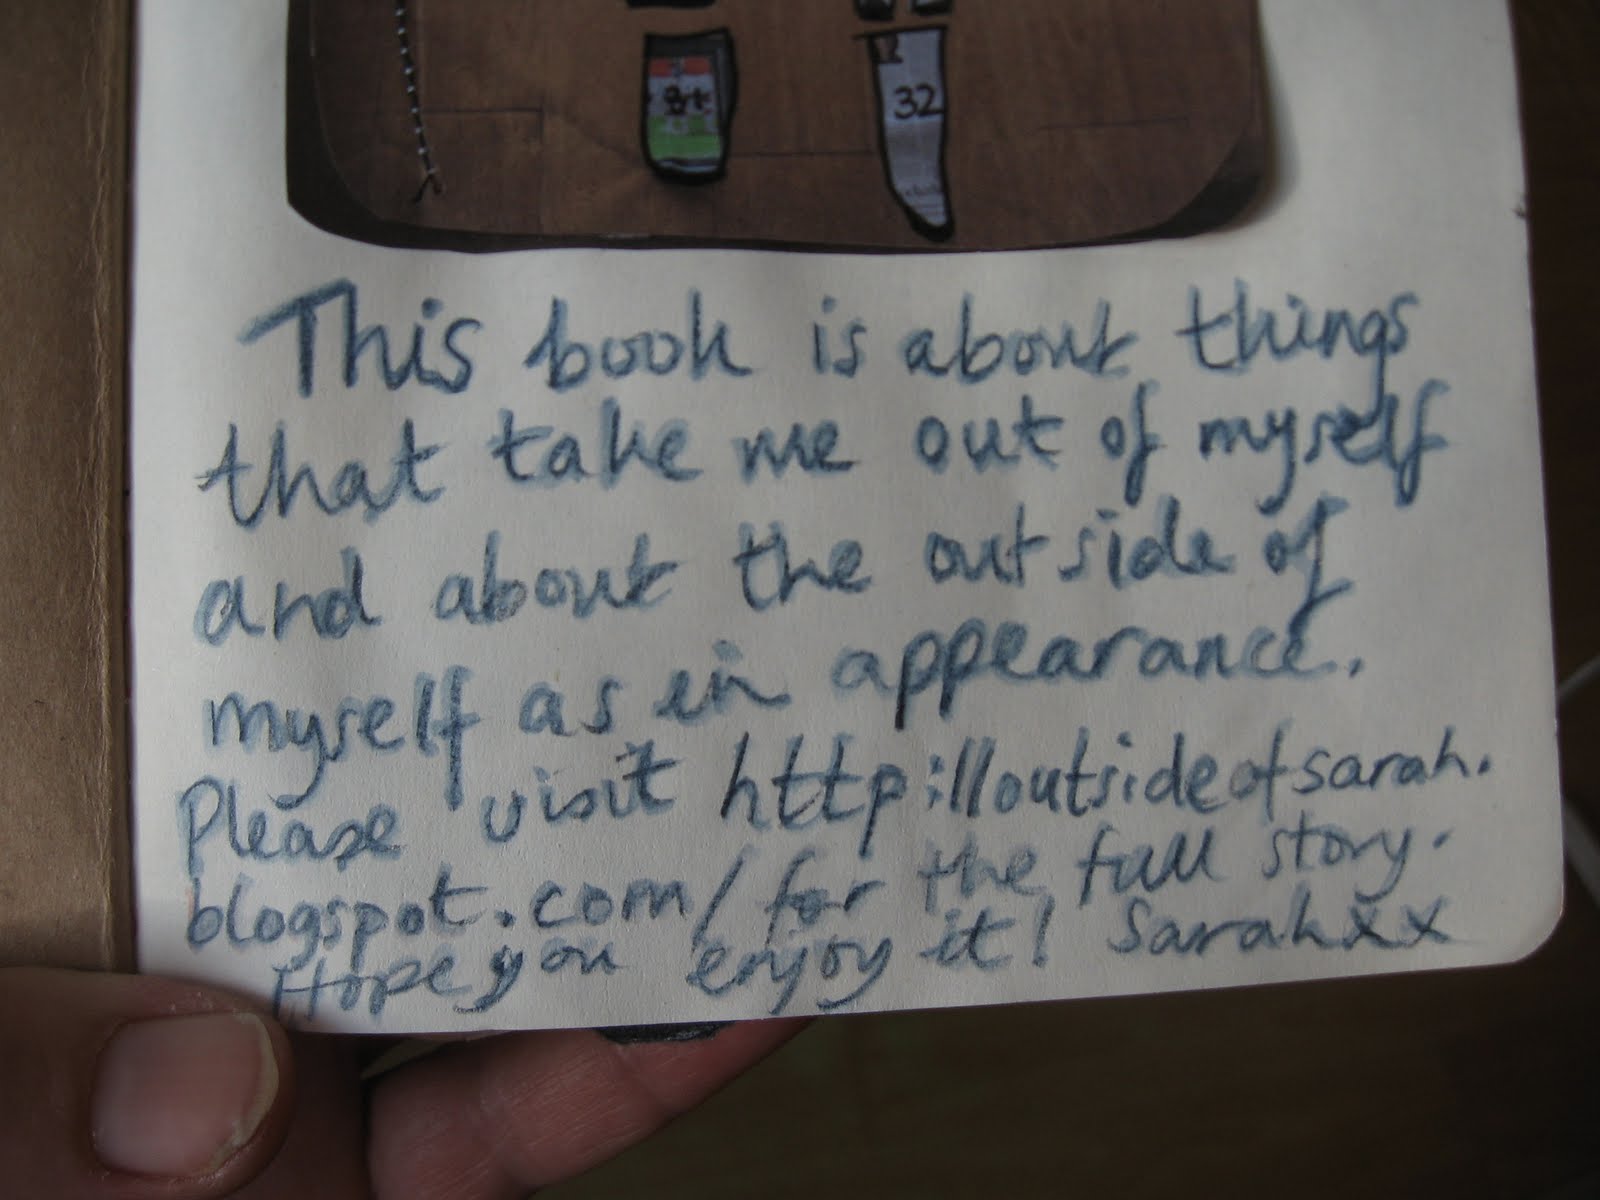 32
This book is about things
that take me out of myself
and about the outside of
myself as in appearance.
Please visit http://outsideofsarah.
blogspot.com/ for the full story.
Hope you enjoy it! Sarah xx